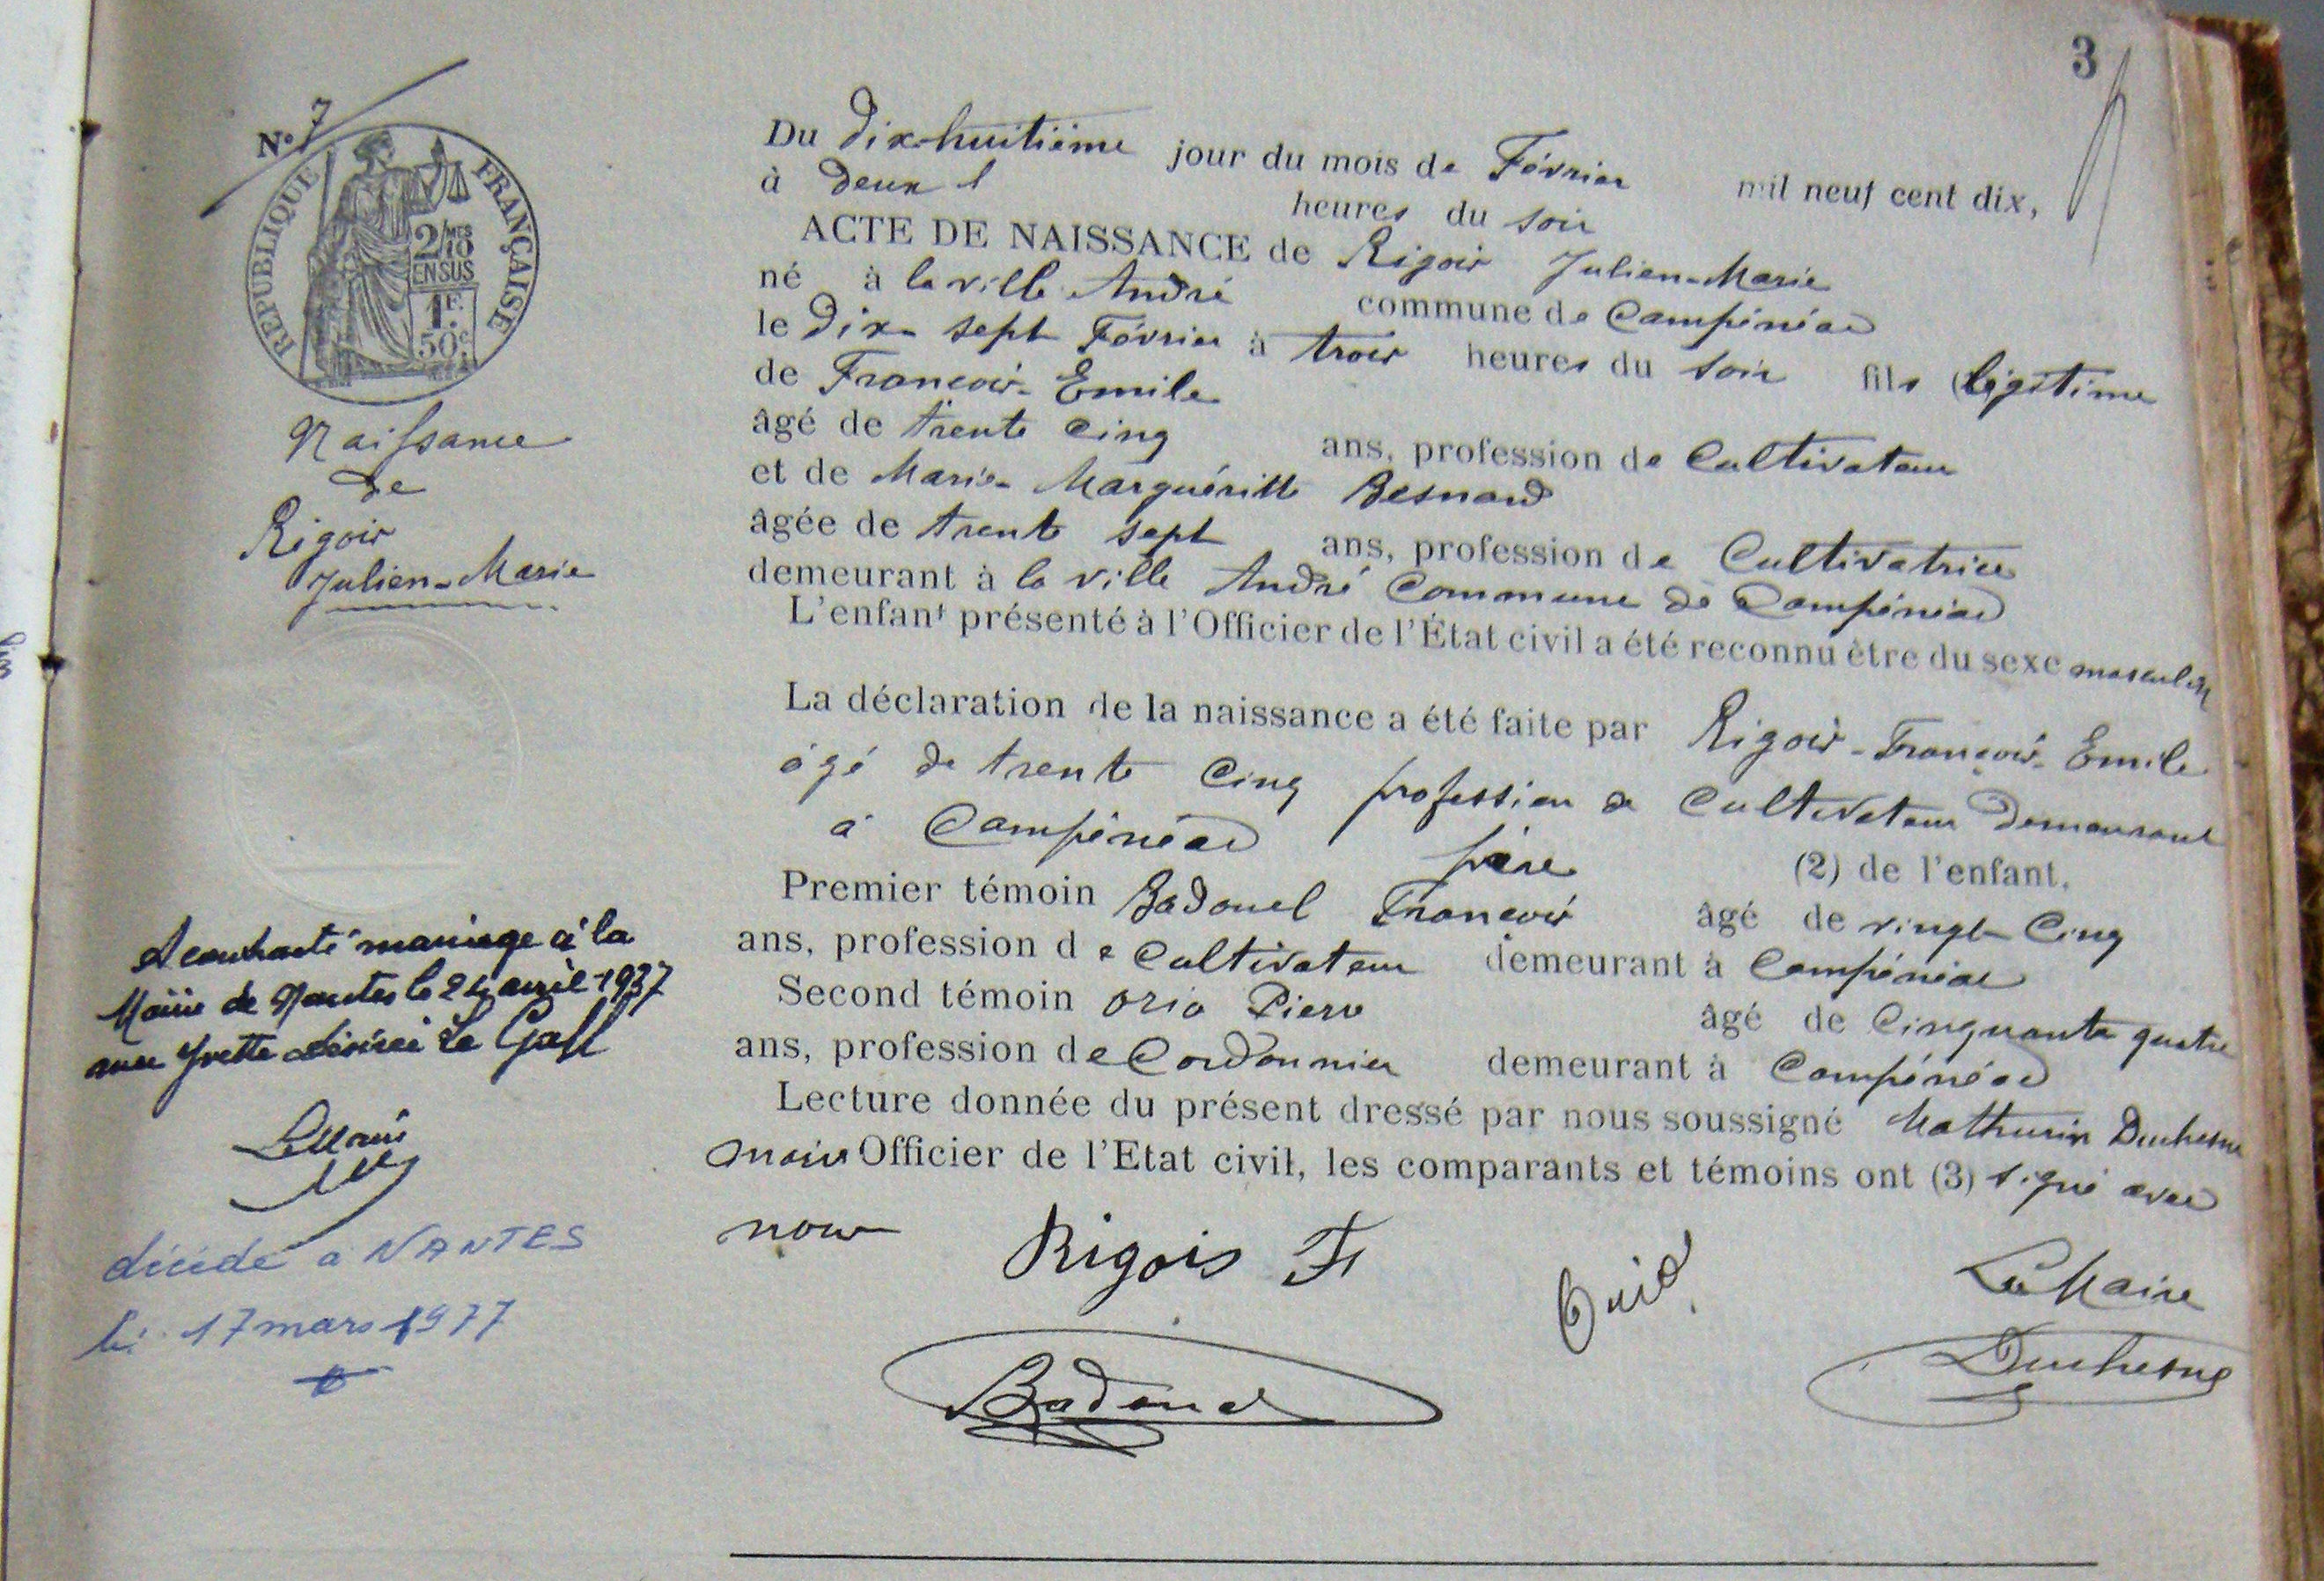 3
N° 7
REPUBLIQUE FRANÇAISE
2/10 MES
EN SUS
1F.
50c
Naissance
de
Rigois
Julien-Marie
A contracté mariage à la
Mairie de Nantes le 24 avril 1937
avec Yvette Désirée Le Gall
Le Maire
décédé à NANTES
le 17 mars 1977
Du dix-huitième jour du mois de Février mil neuf cent dix,
à deux heures du soir
ACTE DE NAISSANCE de Rigois Julien-Marie
né à la ville André commune de Campénéac
le dix-sept Février à trois heures du soir fils (légitime
de François-Emile
âgé de trente cinq ans, profession de Cultivateur
et de Marie-Marguéritte Besnard
âgée de trente sept ans, profession de Cultivatrice
demeurant à la ville André Commune de Campénéac
L'enfant présenté à l'Officier de l'État civil a été reconnu être du sexe masculin
La déclaration de la naissance a été faite par Rigois-François-Emile
âgé de trente cinq profession de Cultivateur demeurant
à Campénéac père (2) de l'enfant.
Premier témoin Badouel François âgé de vingt-cinq
ans, profession de Cultivateur demeurant à Campénéac
Second témoin Orio Pierre âgé de cinquante quatre
ans, profession de Cordonnier demeurant à Campénéac
Lecture donnée du présent dressé par nous soussigné Mathurin Duchesne
maire Officier de l'Etat civil, les comparants et témoins ont (3) signé avec
nous
Rigois F
Orio
Le Maire
Badouel
Duchesne